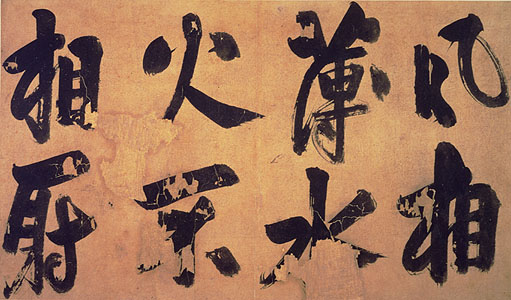 風相
薄水
火不
相射